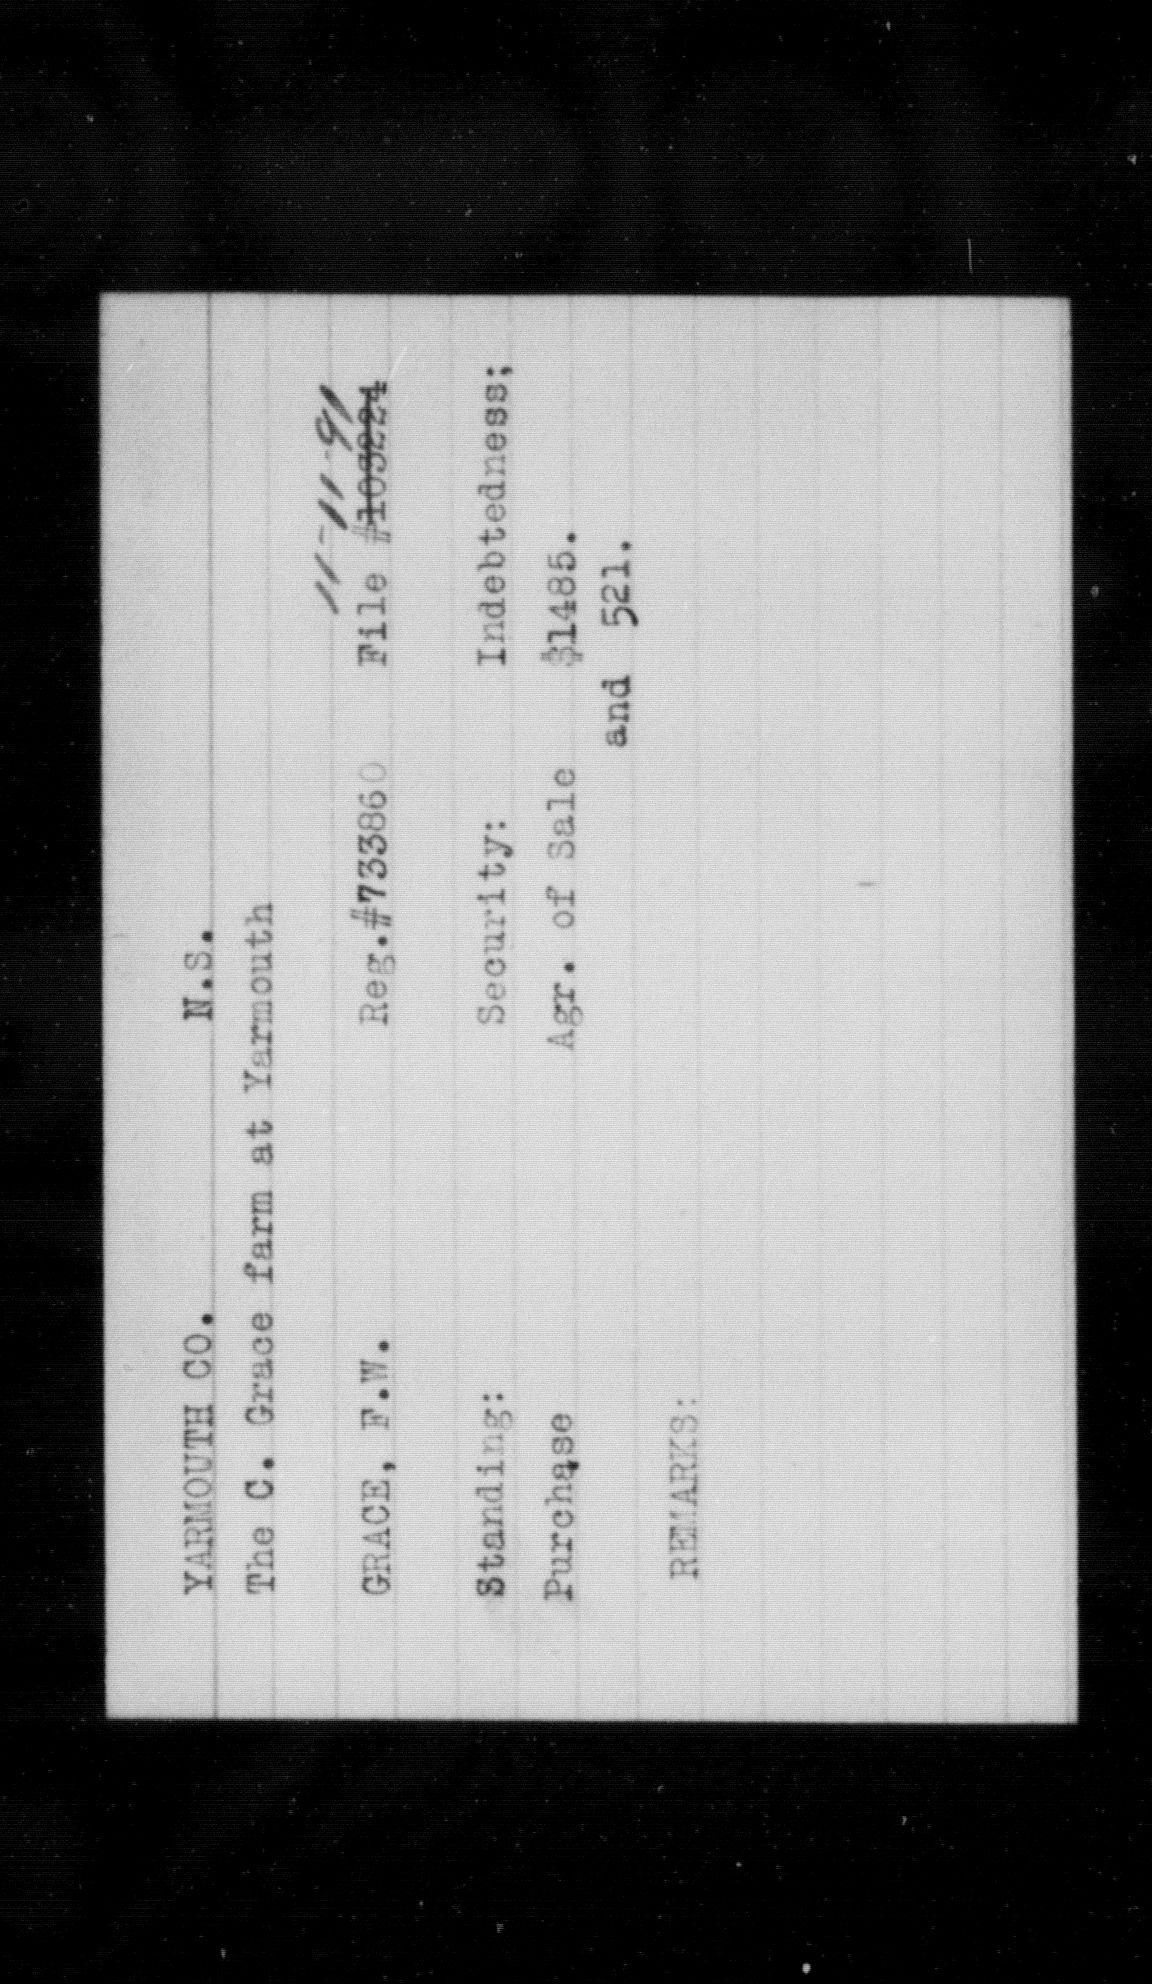 YARMOUTH CO. N.S.
The C. Grace farm at Yarmouth
11-11-91
GRACE, F.W. Reg.#733860 File #103224
Standing: Security: Indebtedness;
Purchase Agr. of Sale $1485.
and 521.
REMARKS: